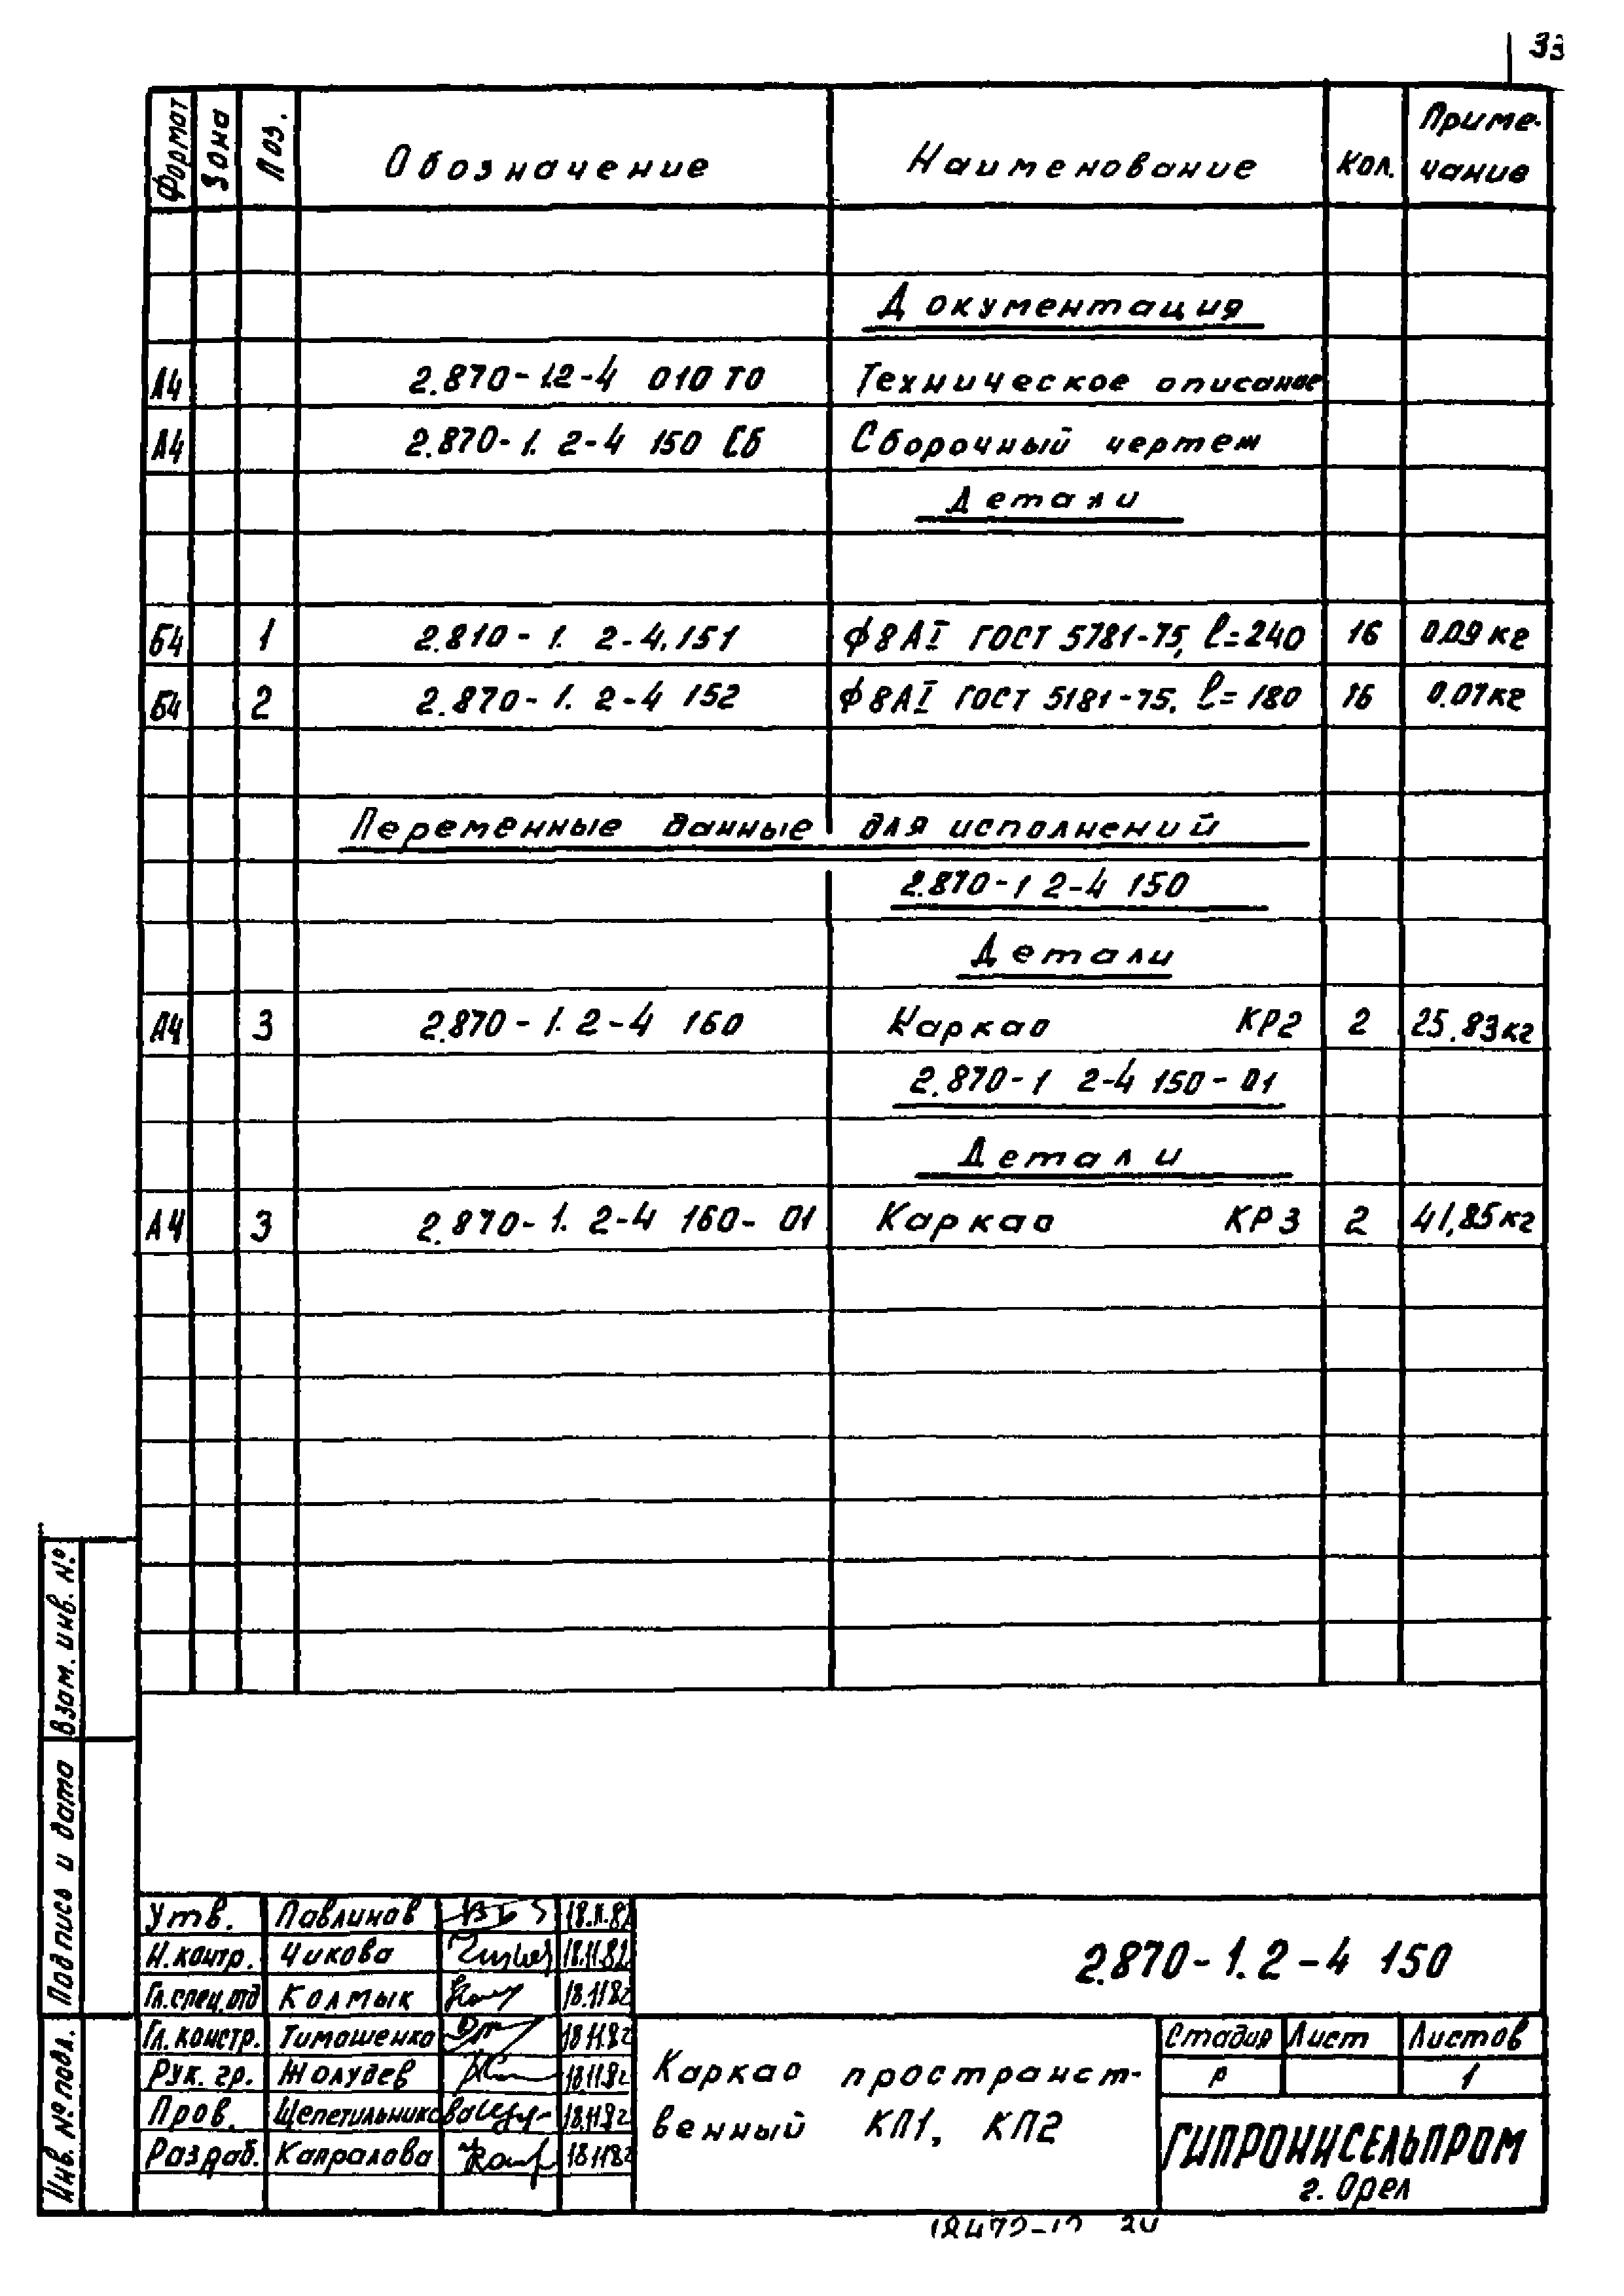 33
Формат Зона Поз. Обозначение Наименование Кол. Приме-
чание
Документация
А4 2.870-1.2-4 010 ТО Техническое описание
А4 2.870-1. 2-4 150 СБ Сборочный чертеж
Детали
Б4 1 2.810-1. 2-4.151 ф8АI ГОСТ 5781-75, ℓ=240 16 0.09 кг
Б4 2 2.870-1. 2-4 152 ф8АI ГОСТ 5181-75. ℓ=180 16 0.07кг
Переменные данные для исполнений
2.870-1 2-4 150
Детали
А4 3 2.870-1. 2-4 160 Каркас КР2 2 25.83кг
2.870-1 2-4 150-01
Детали
А4 3 2.870-1. 2-4 160-01 Каркас КР3 2 41,85кг
Взам. инв. №
Подпись и дата
Инв. № подл.
Утв. Павлинов 18.11.82
Н.контр. Чикова 18.11.82
Гл.спец.отд Колмык 18.1182
Гл.констр. Тимошенко 18.11.82
Рук. гр. Жолудев 18.11.82
Пров. Щепетильникова 18.11.82
Разраб. Капралова 18.1182
2.870-1.2-4 150
Каркас пространст-
венный КП1, КП2
Стадия Лист Листов
Р 1
ГИПРОНИСЕЛЬПРОМ
г. Орел